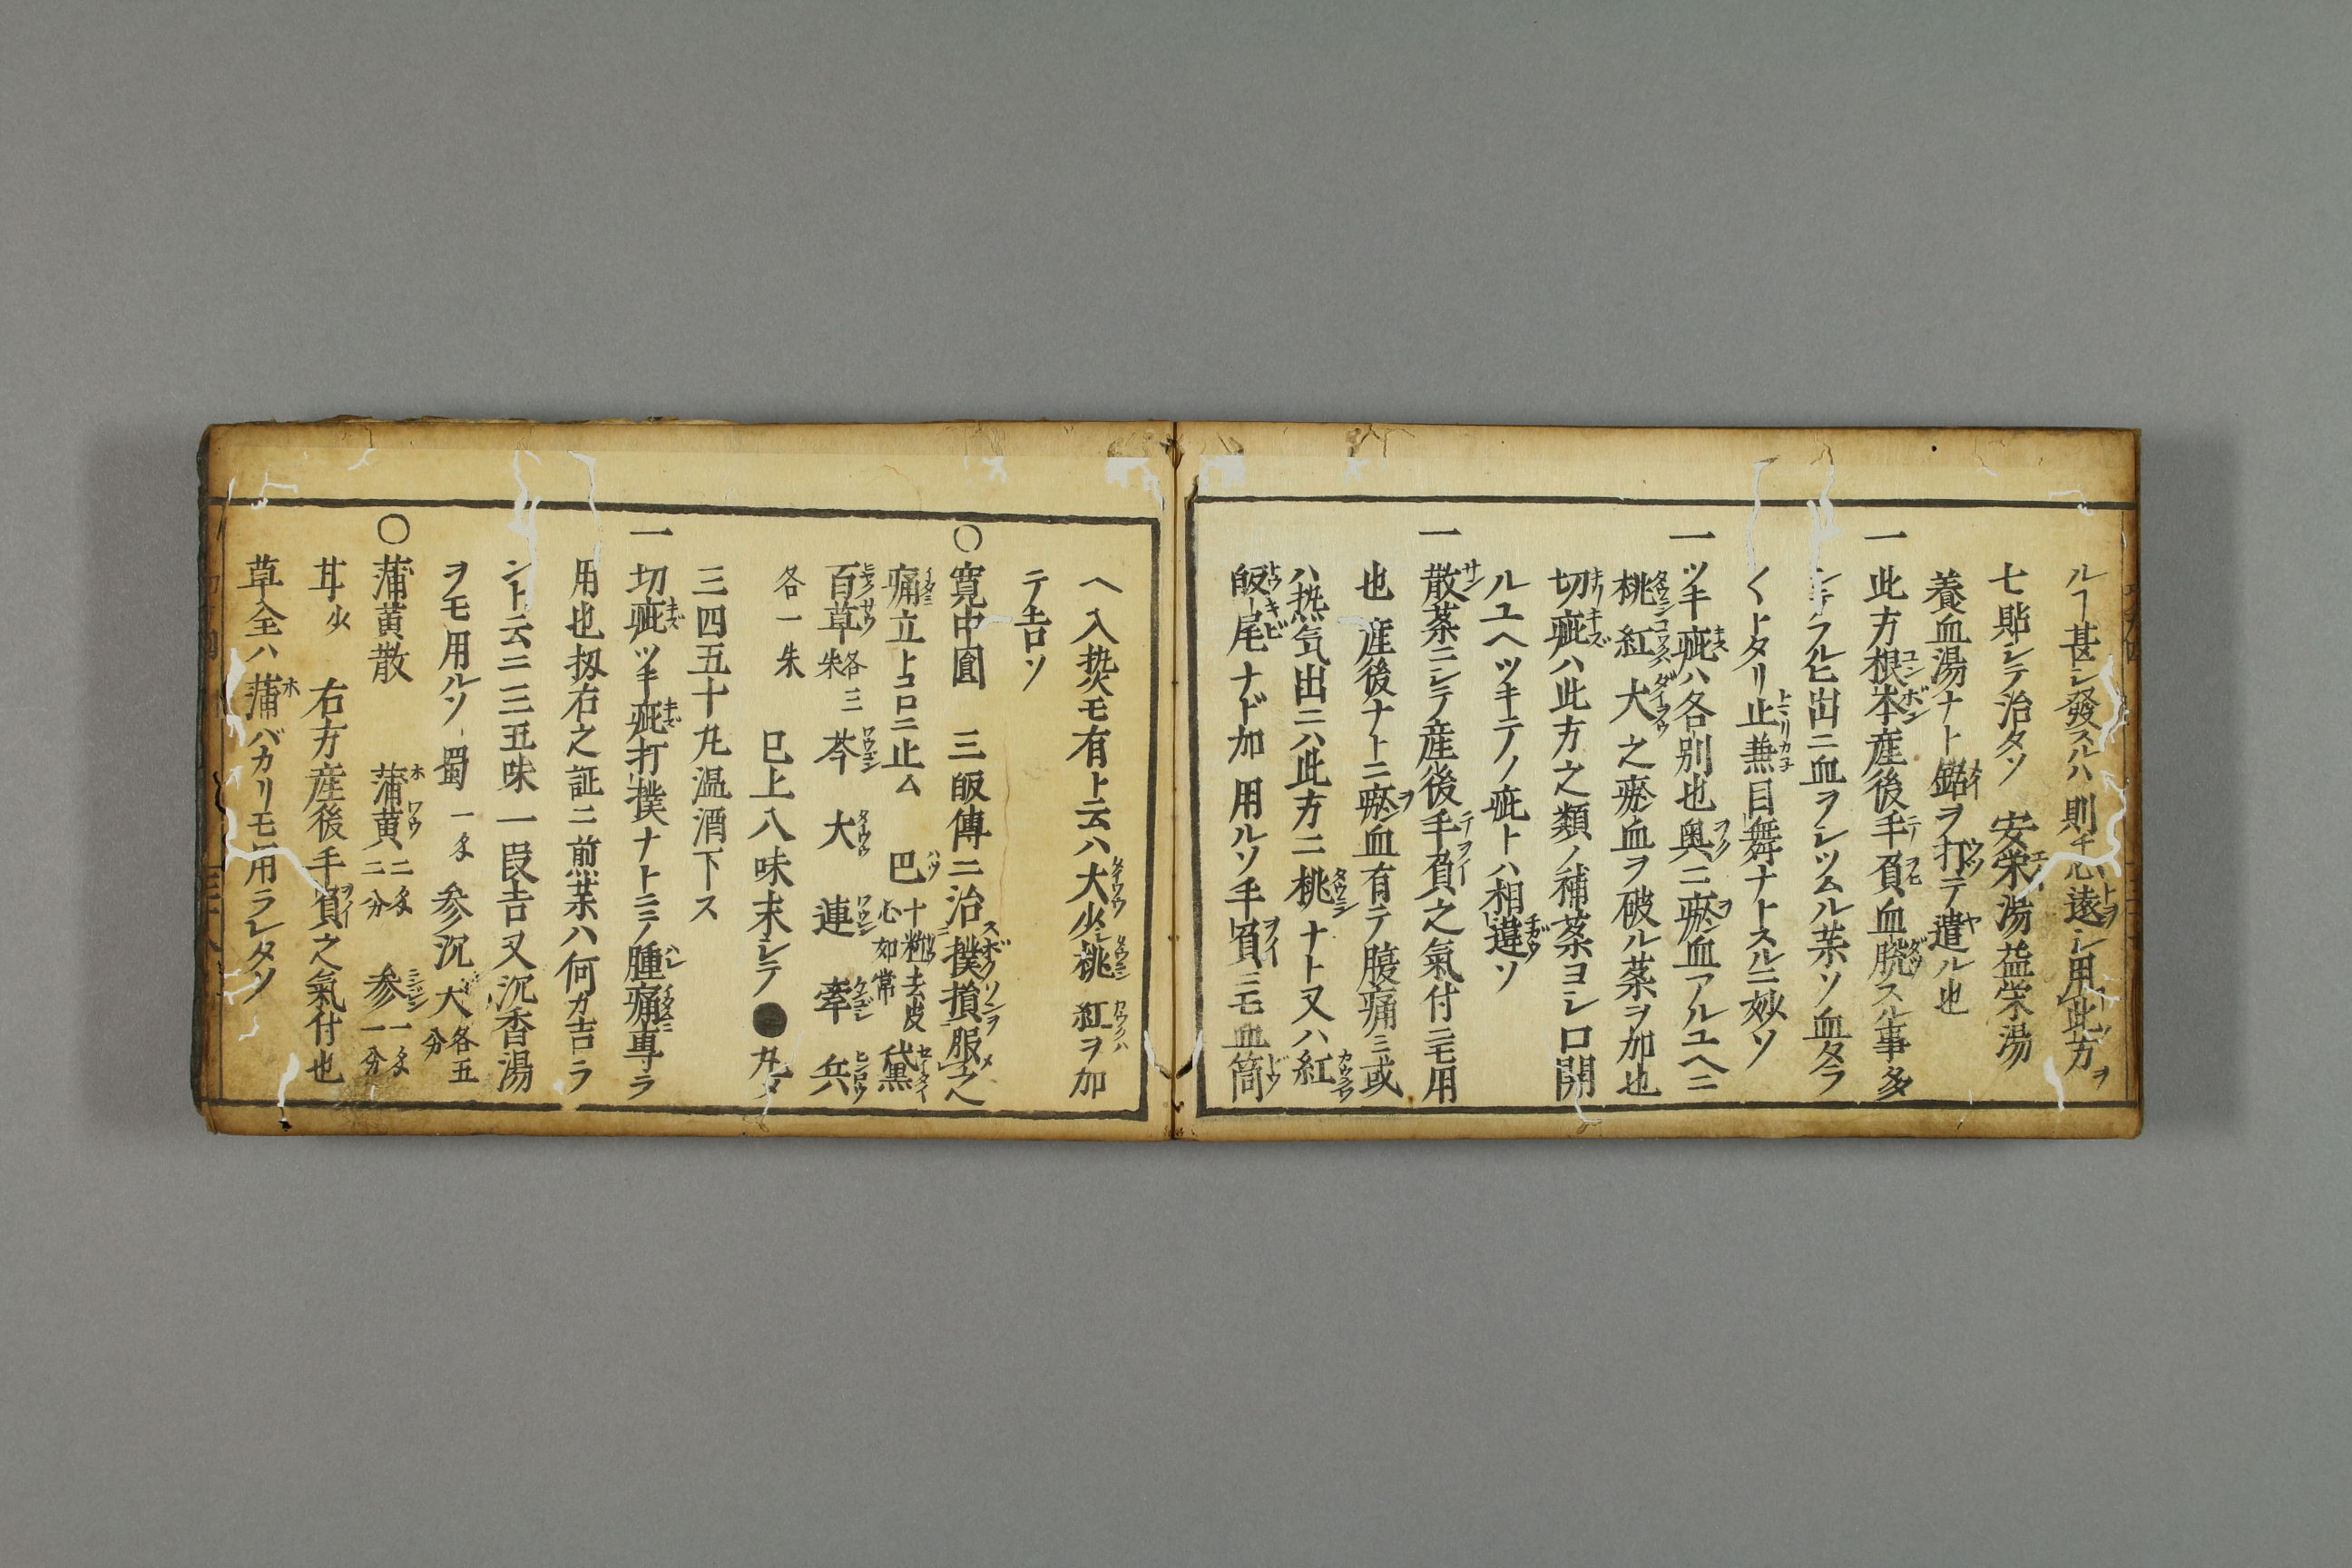 ルヿ甚シ發スルハ則チ忘遠シ用此方ヲ
七貼シテ治タソ　安栄湯益栄湯
養血湯ナト鍼ヲ打テ遣ル也
一此方根本産後手負血脱スル事多
シテクル匕出ニ血ヲシツムル薬ソ血タラ
くトタリ止兼目舞ナトスルニ妙ソ
一ツキ疵ハ各別也奥ニ瘀血アルユヘニ
桃紅大之瘀血ヲ破ル薬ヲ加也
切疵ハ此方之類ノ補薬ヨシ口開
ルユヘツキテノ疵トハ相違ソ
一散薬ニシテ産後手負之氣付ニモ用
也産後ナトニ瘀血有テ腹痛ミ或
ハ𤍠気出ニハ此方ニ桃ナト又ハ紅
皈尾ナド加用ルソ手負ニモ血筒
ヘ入𤍠モ有ト云ハ大少シ桃紅ヲ加
テ吉ソ
〇寛中圓　三皈傳ニ治撲損服之
痛立トコロニ止ム　巴十粒去皮心如常黛
百草各三朱芩大連牽兵
各一朱　已上八味末シテ●丸タ
三四五十丸温酒下ス
一切疵ツキ疵打撲ナトニミノ腫痛専ラ
用也扨右之証ニ煎薬ハ何カ吉ラ
ント云ニ三五味一段吉又沉香湯
ヲモ用ルソ蜀一匁参沉大各五分
〇蒲黄散　蒲黄二匁二分　参一匁一分
甘少　右方産後手負之氣付也
草全ハ蒲バカリモ用ラレタソ